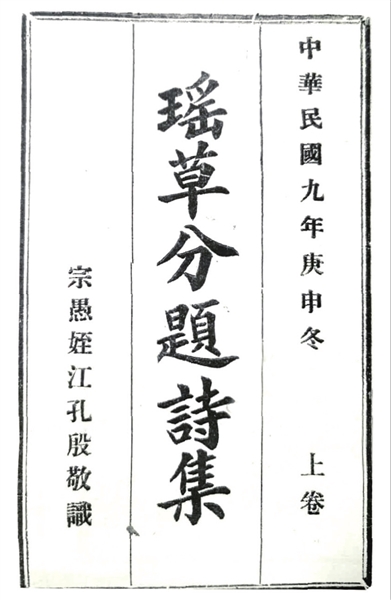 中華民國九年庚申冬　上卷
瑶草分題詩集
宗愚姪江孔殷敬識